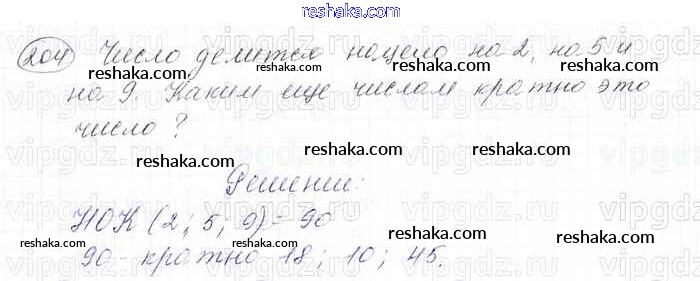 reshaka.com
204 Число делится нацело на 2, на 5 и
reshaka.com reshaka.com reshaka.com
на 9. Каким еще числам кратно это
reshaka.com reshaka.com reshaka.com
число ?
reshaka.com reshaka.com reshaka.com
Решение:
reshaka.com reshaka.com reshaka.com
НОК (2; 5; 9) = 90
reshaka.com reshaka.com reshaka.com
90 кратно 18; 10; 45.